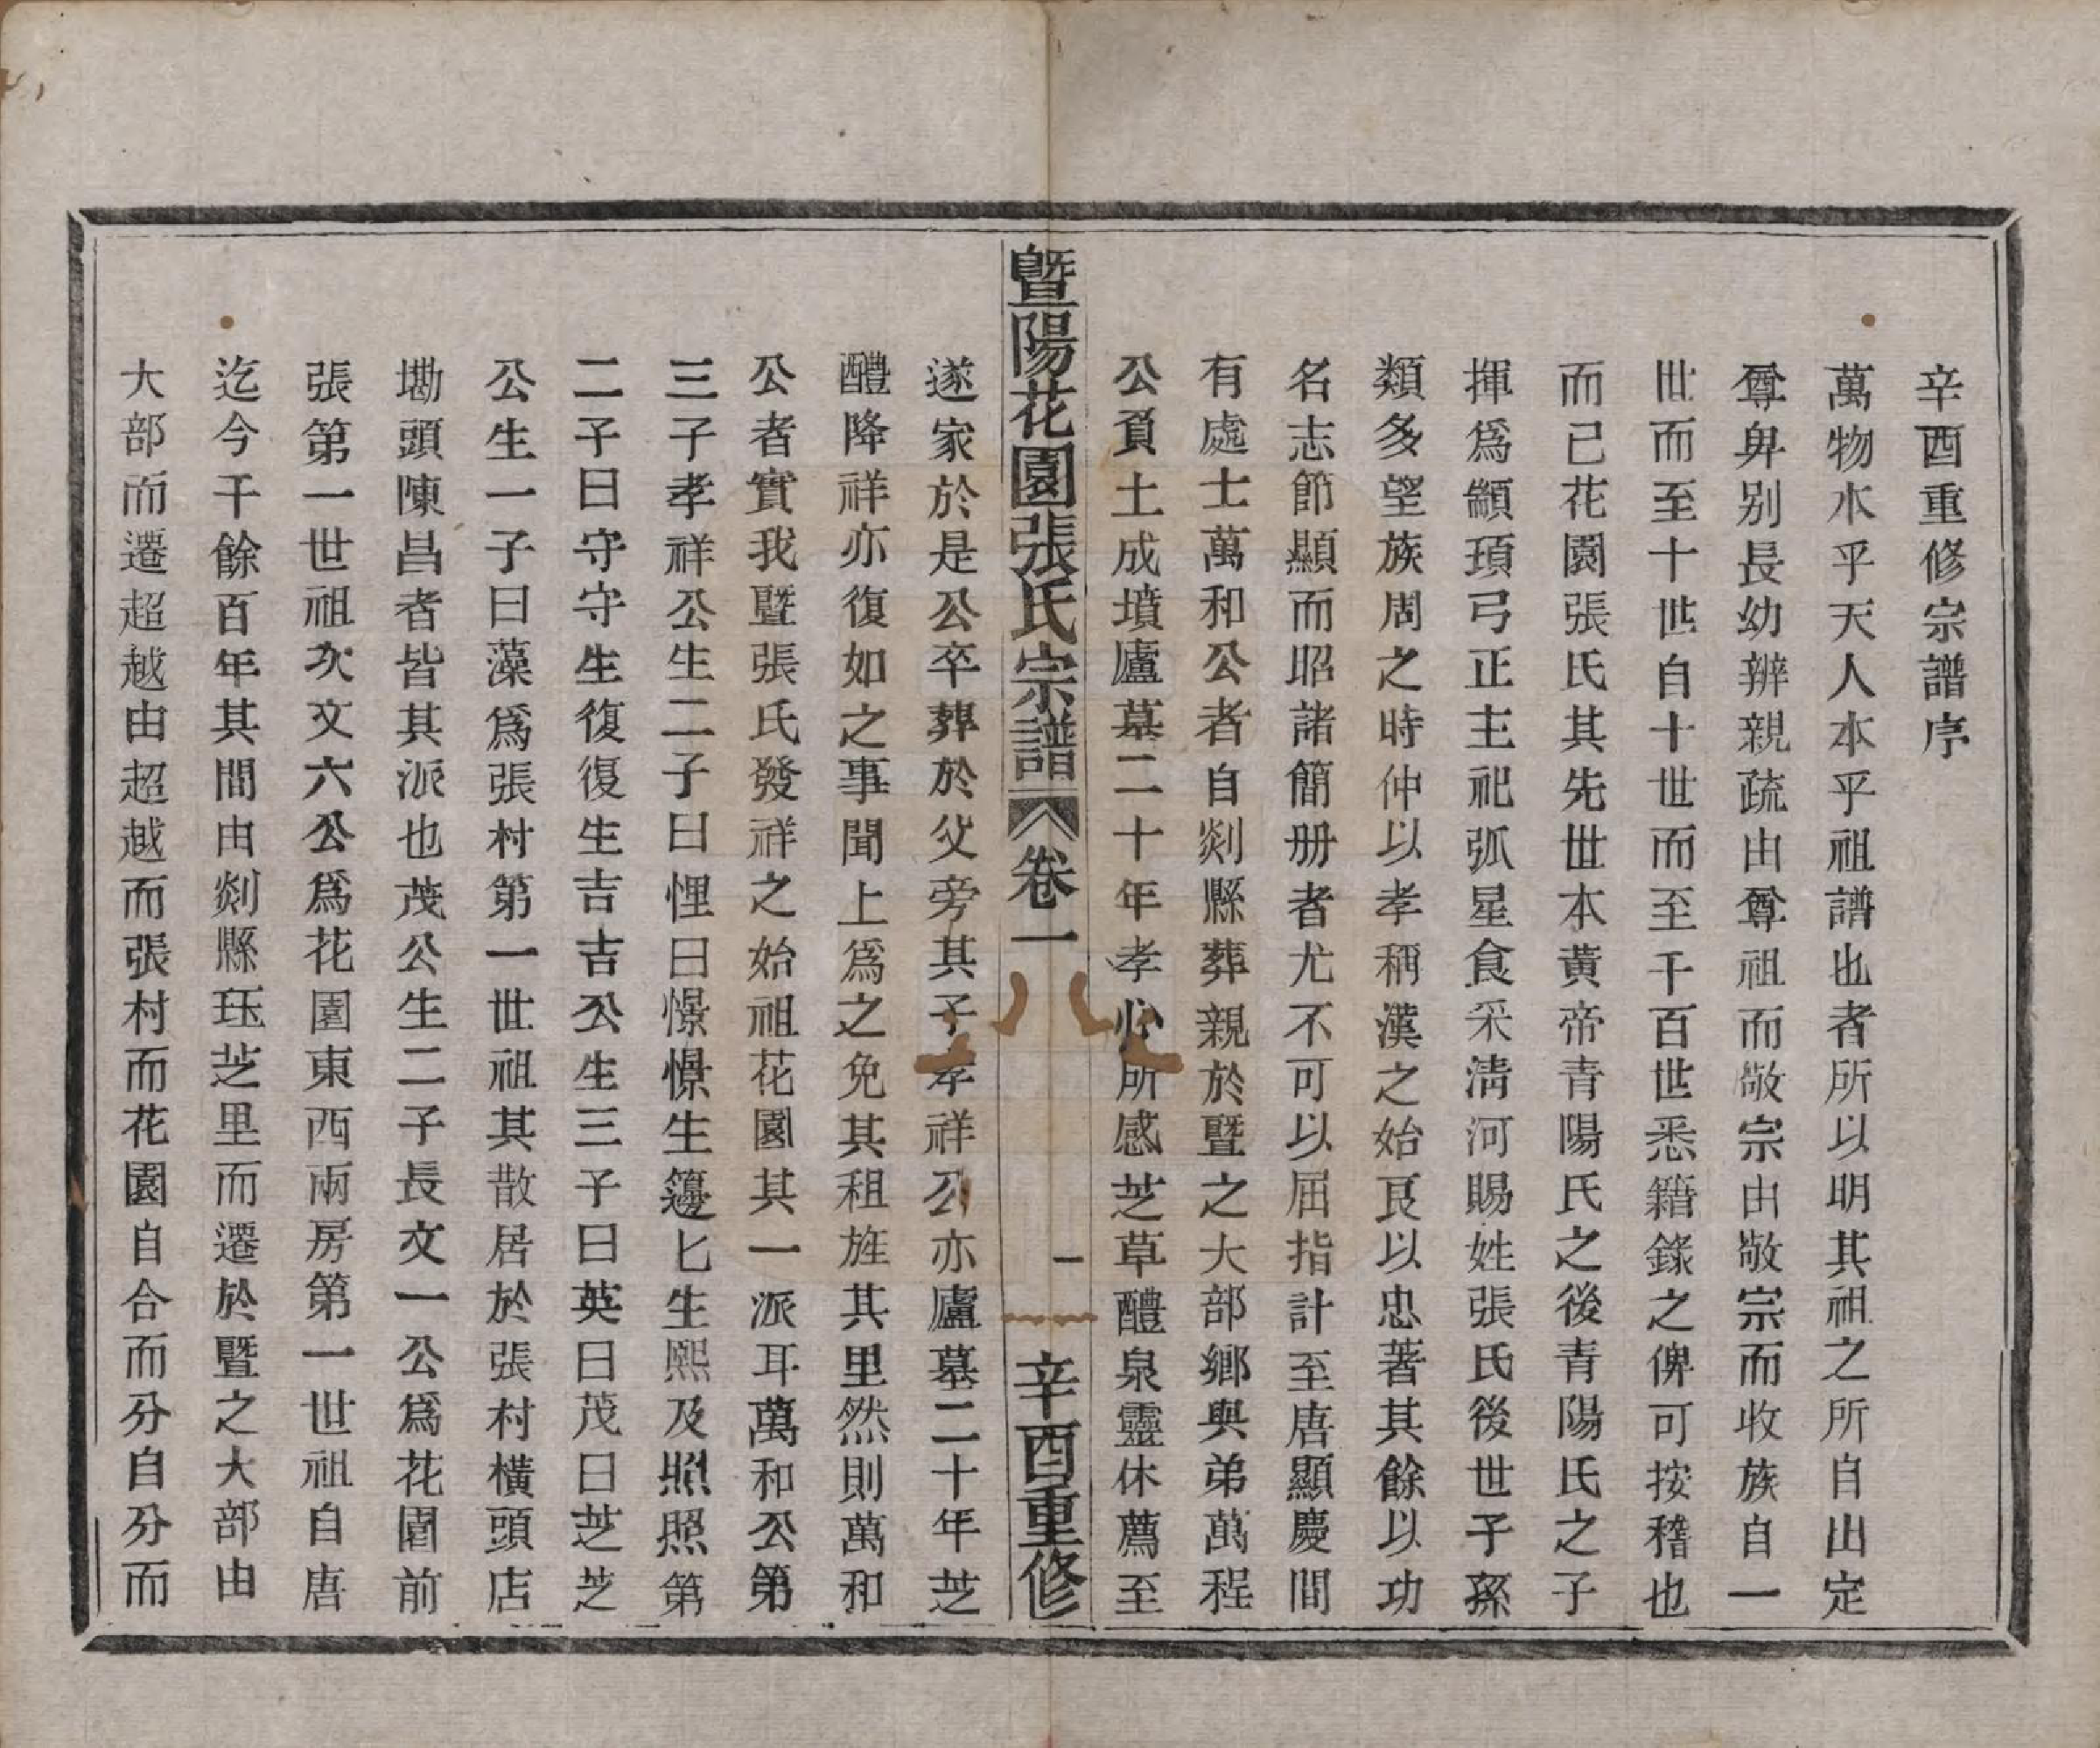 辛酉重修宗譜序
萬物水乎天人本乎祖譜也者所以明其祖之所自出定
尊卑别長幼辨親疏由尊祖而敬宗由敬宗而收族自一
世而至十世自十世而至千百世悉籍錄之俾可按稽也
而已花園張氏其先世本黃帝青陽氏之後青陽氏之子
揮爲顓頊弓正主祀弧星食采淸河賜姓張氏後世子孫
類多望族周之時仲以孝稱漢之始良以忠著其餘以功
名志節顯而昭諸簡册者尤不可以屈指計至唐顯慶間
有處士萬和公者自剡縣葬親於曁之大部鄉與弟萬程
公負土成墳廬墓二十年孝心所感芝草醴泉靈休薦至
曁陽花園張氏宗譜 卷一 一 辛酉重修
遂家於是公卒葬於父旁其子孝祥公亦廬墓二十年芝
醴降祥亦復如之事聞上爲之免其租旌其里然則萬和
公者實我曁張氏發祥之始祖花園其一派耳萬和公第
三子孝祥公生二子曰悝曰憬憬生籩匕生熙及照照第
二子曰守守生復復生吉吉公生三子曰英曰茂曰芝芝
公生一子曰藻爲張村第一世祖其散居於張村橫頭店
墈頭陳昌者皆其派也茂公生二子長文一公爲花園前
張第一世祖次文六公爲花園東西兩房第一世祖自唐
迄今千餘百年其間由剡縣珏芝里而遷於曁之大部由
大部而遷超越由超越而張村而花園自合而分自分而